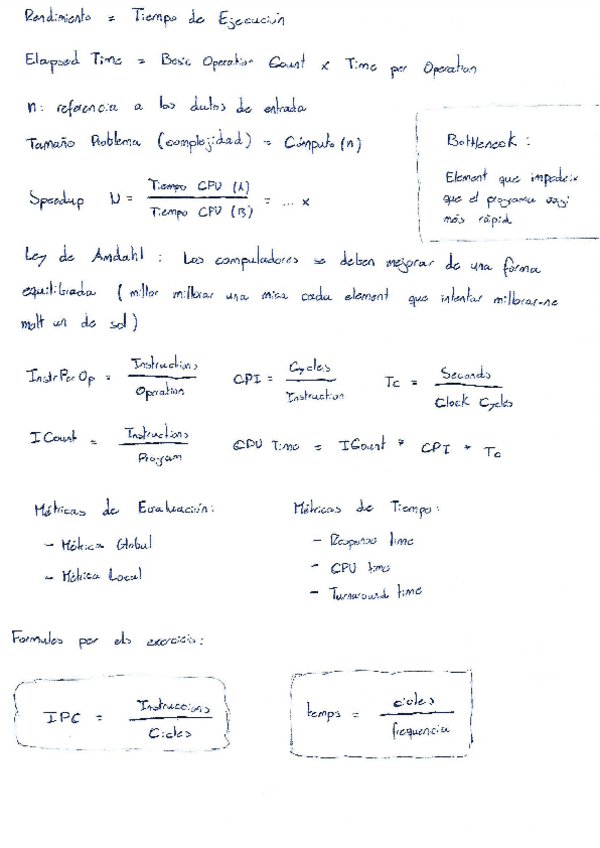 Rendimiento = Tiempo de Ejecución
Elapsed Time = Basic Operation Count x Time per Operation
n: referencia a los datos de entrada
Tamaño Problema (complejidad) = Cómputo (n)
Bottleneck :
Element que impedeix
que el programa vagi
més ràpid
Speedup U = Tiempo CPU (A) / Tiempo CPU (B) = ... x
Ley de Amdahl : Los computadores se deben mejorar de una forma
equilibrada (millor millorar una mica cada element que intentar millorar-ne
molt un de sol)
InstrPerOp = Instructions / Operation CPI = Cycles / Instruction Tc = Seconds / Clock Cycles
ICount = Instructions / Program CPU Time = ICount * CPI * Tc
Métricas de Evaluación:
- Métrica Global
- Métrica Local
Métricas de Tiempo:
- Response time
- CPU time
- Turnaround time
Formules per els exercicis:
IPC = Instruccions / Cicles
temps = cicles / frequencia